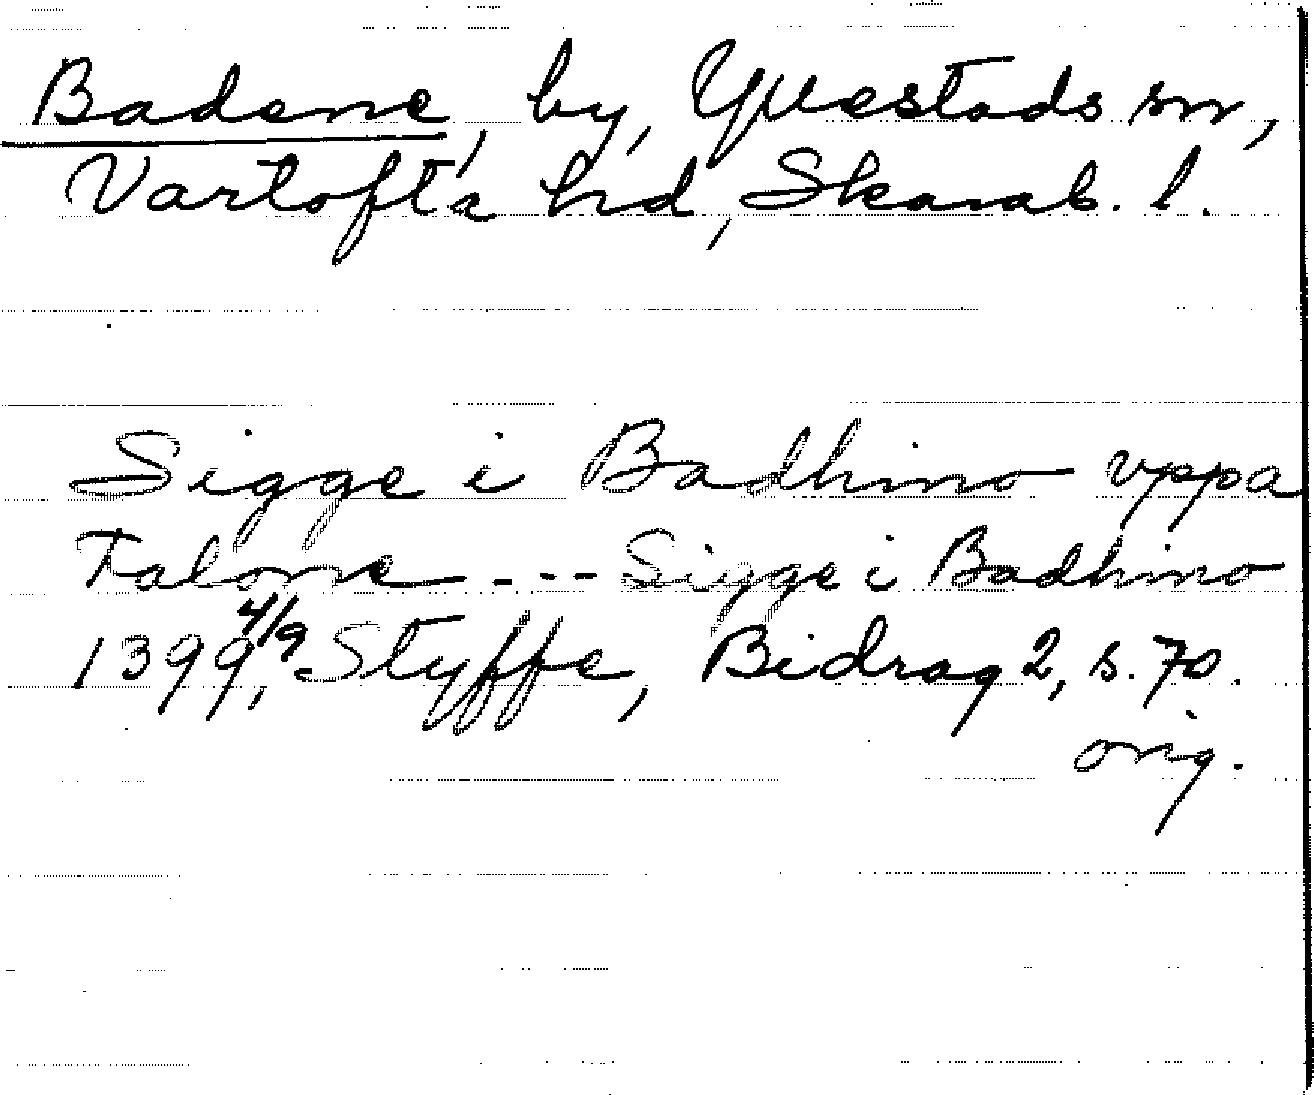 Badene, by, Yvestads sn,
Vartofta hd, Skarab. l.
Sigge i Badhino vppa
Falone --- Sigge i Badhino
1399 4/9, Styffe, Bidrag 2, s. 70.
orig.